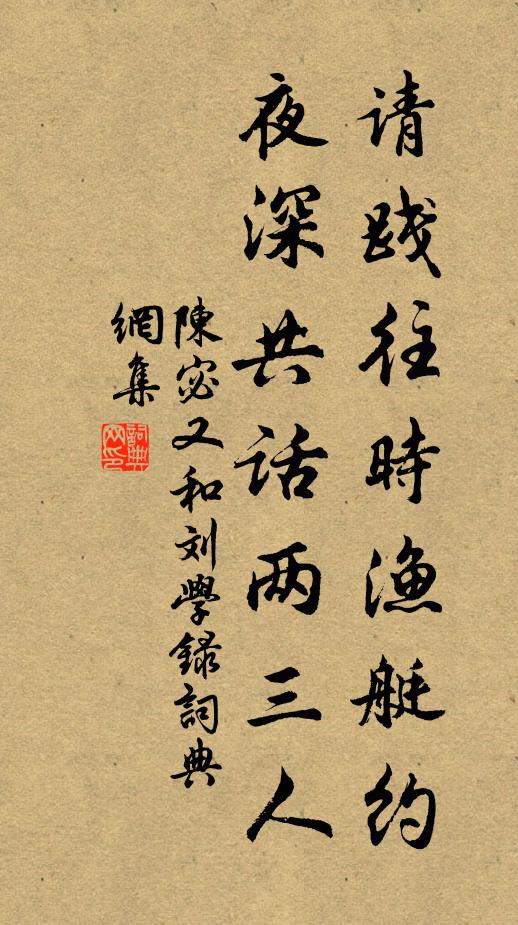 请践往時渔艇约
夜深共话两三人
陳宓又和刘學録詞典
網集
詞典網印